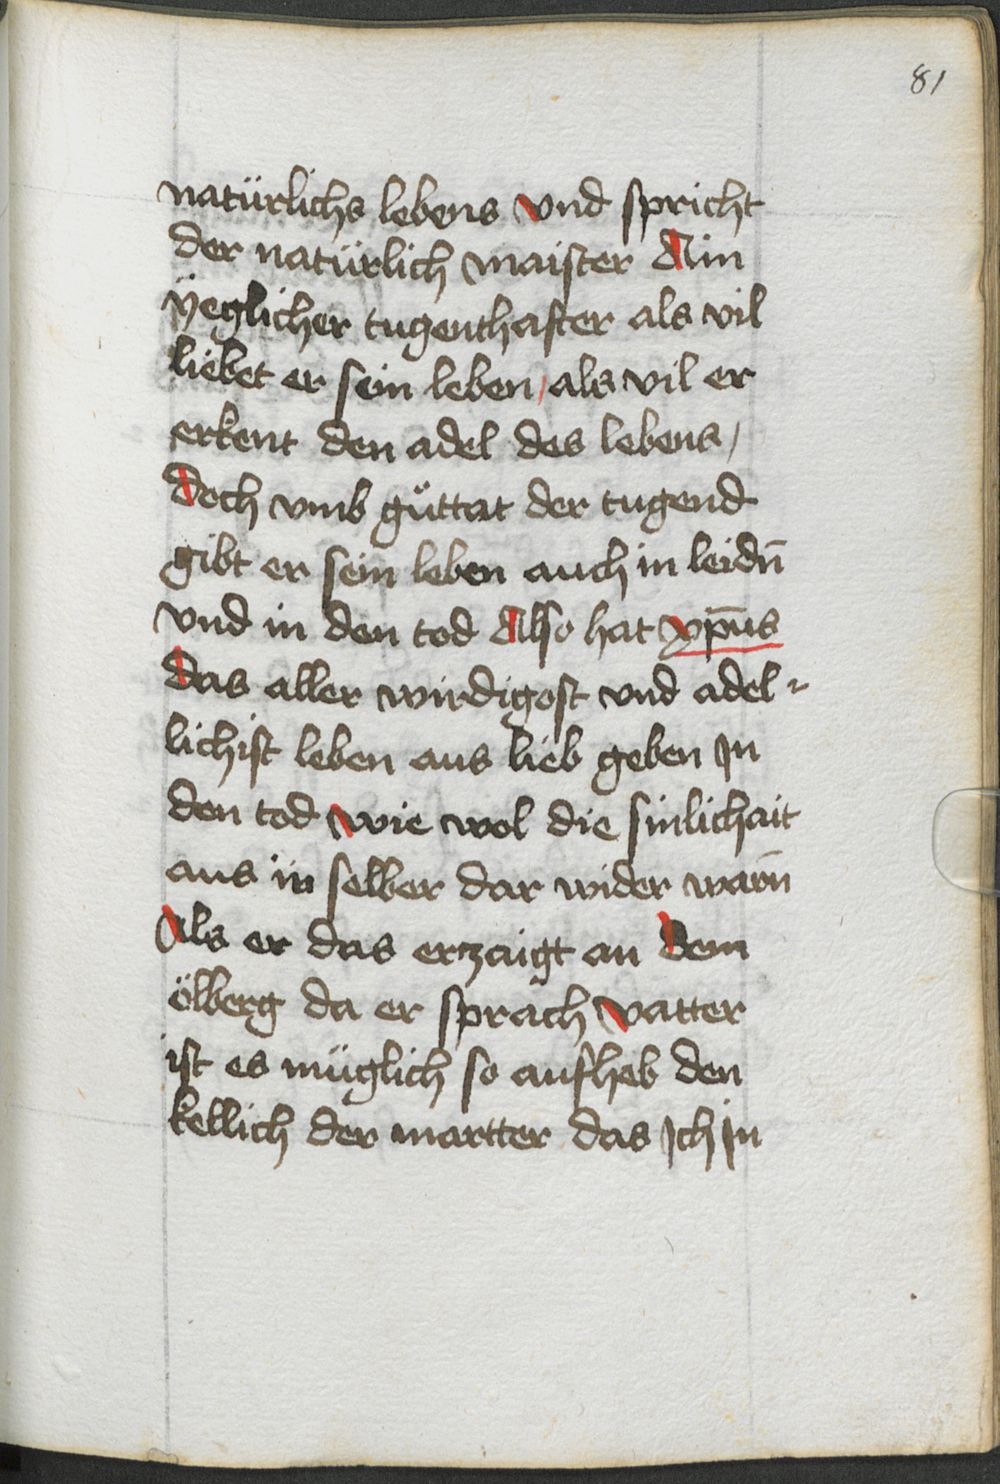 81
natürlichs lebens vnd spricht
der natürlich maister Ain
ÿeglicher tugenthafter als vil
liebet er sein leben / als vil er
erkent den adel des lebens /
doch vmb güttat der tugend
gibt er sein leben auch in leidn̄
vnd in den tod Also hat xp̄us
das aller wirdigost vnd adel-
lichist leben aus lieb geben Jn
den tod wie wol die sinlichait
aus in selber dar wider warn̄
Als er das erzaigt an dem
ölberg da er sprach vatter
ist es müglich so aufheb den
kellich der martter das Jch Jn